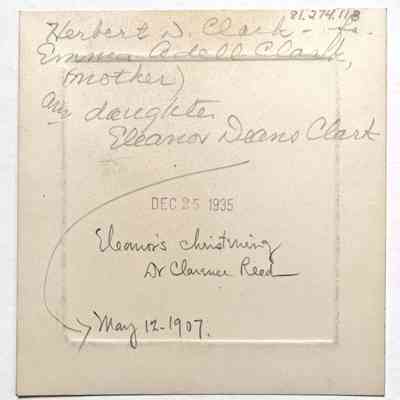 81.274.11B
Herbert D. Clark - fa.
Emma Adell Clark,
(mother)
and daughter
Eleanor Deans Clark
DEC 25 1935
Eleanor's christning
Dr Clarence Reed
May 12-1907.